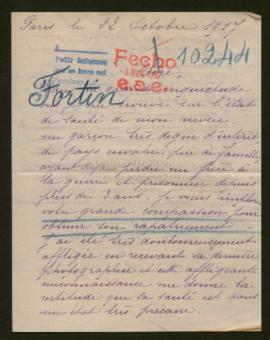 Paris le 22 Octobre 1917
Pedir informes
Fecho
10244
e.s.e.
Fortin
sur l'état
de santé de mon neveu
un garçon très digne d'intérêt
de pays envahis, père de famille,
ayant déjà perdu un frère à
la guerre et prisonnier depuis
près de 3 ans, je viens
votre grande compassion pour
obtenir son rapatriement.
J'ai été très douloureusement
affligée en recevant sa dernière
photographie et cette affligeante
me donne la
certitude que sa santé est dans
un état très précaire.